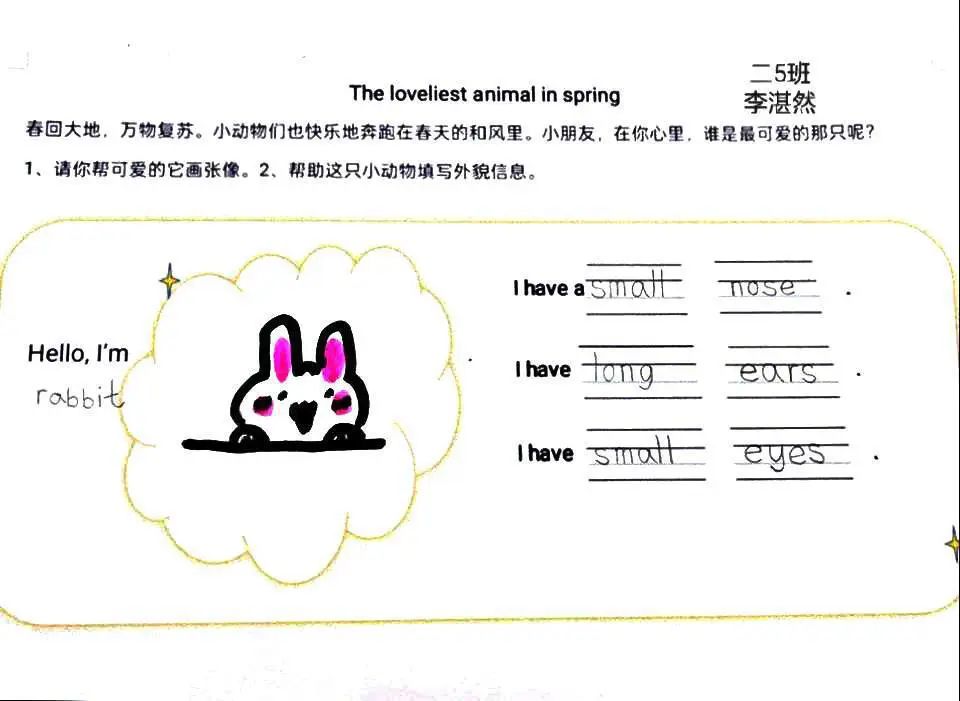 二5班
The loveliest animal in spring
李湛然
春回大地，万物复苏。小动物们也快乐地奔跑在春天的和风里。小朋友，在你心里，谁是最可爱的那只呢？
1、请你帮可爱的它画张像。2、帮助这只小动物填写外貌信息。
Hello, I'm
rabbit
.
I have a small nose .
I have long ears .
I have small eyes .